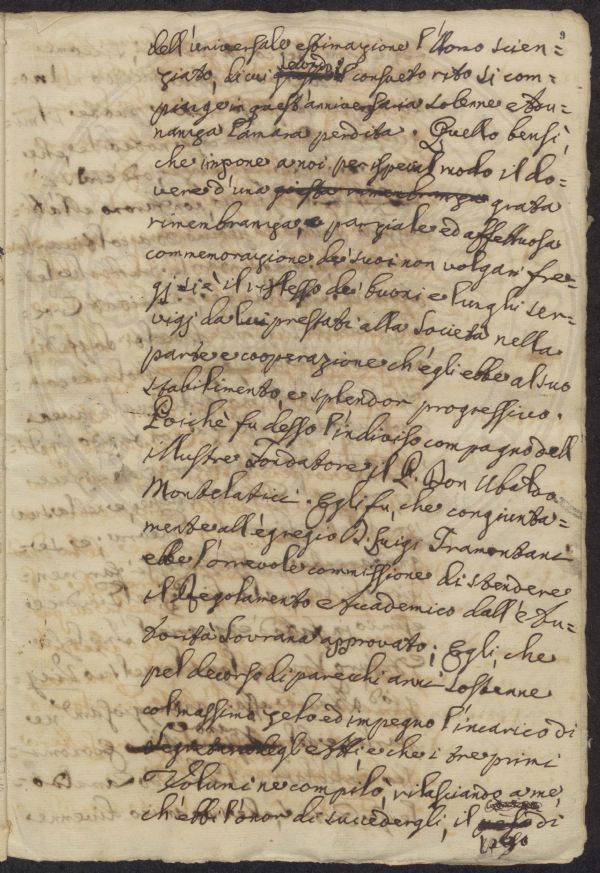 9
dell'universale estimazione l'Uomo scien=
ziato, di cui secondo il consueto rito si com=
piange in quest'anniversaria solenne Adu=
nanza l'amara perdita. Quello bensì,
che impone a noi per ispecial modo il do=
vere d'una giusta rimembranza grata
rimembranza, e parziale ed affettuosa
commemorazione de' suoi non volgari fre=
gi si è il riflesso de' buoni e lunghi ser=
vigj da lui prestati alla Società nella
parte e cooperazione ch'egli ebbe al suo
stabilimento, e splendor progressivo.
Poichè fu desso l'indiviso compagno dell'
Illustre Fondatore il P. Don Ubaldo
Montelatici. Egli fu, che congiunta=
mente all'egregio D. Luigi Tramontani
ebbe l'orrevole commissione di stendere
il Regolamento Accademico dall'Au=
torità Sovrana approvato; Egli, che
pel decorso di parecchi anni sostenne
col massimo zelo ed impegno l'incarico di
Segretario degli Atti, e che i tre primi
Volumi ne compilò, rilasciando a me,
ch'ebbi l'onor di succedergli, il peso di